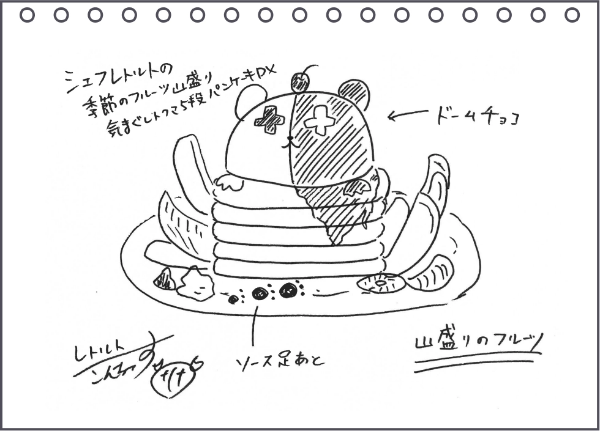 シェフレトルトの
季節のフルーツ山盛り
気まぐレトクマ5段パンケーキDX
ドームチョコ
ソース足あと
山盛りのフルーツ
レトルト